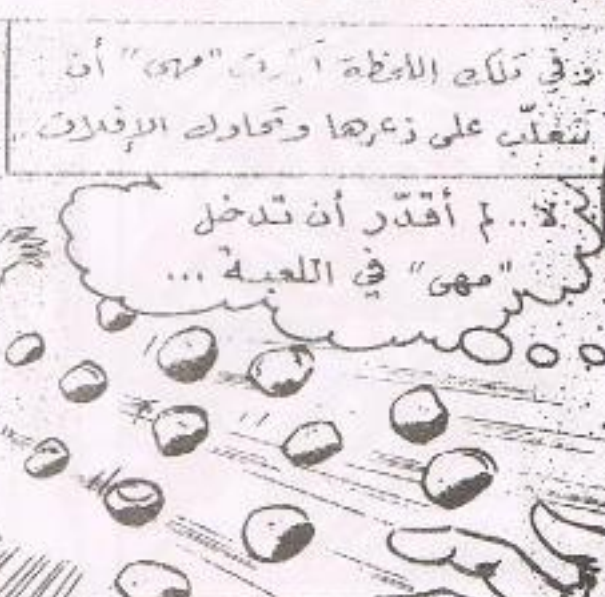 وفي تلك اللحظة "مهى" أن
تتغلّب على ذعرها وتحاول الإفلات ..
لا .. لم أقدّر أن تدخل
"مهى" في اللعبة ...